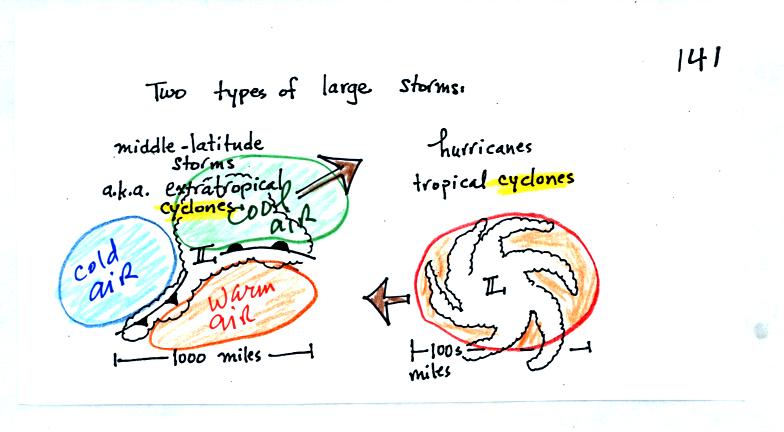 141
Two types of large storms.
middle-latitude
storms
a.k.a. extratropical
cyclones
hurricanes
tropical cyclones
cool
air
cold
air
L
warm
air
L
1000 miles
100s
miles